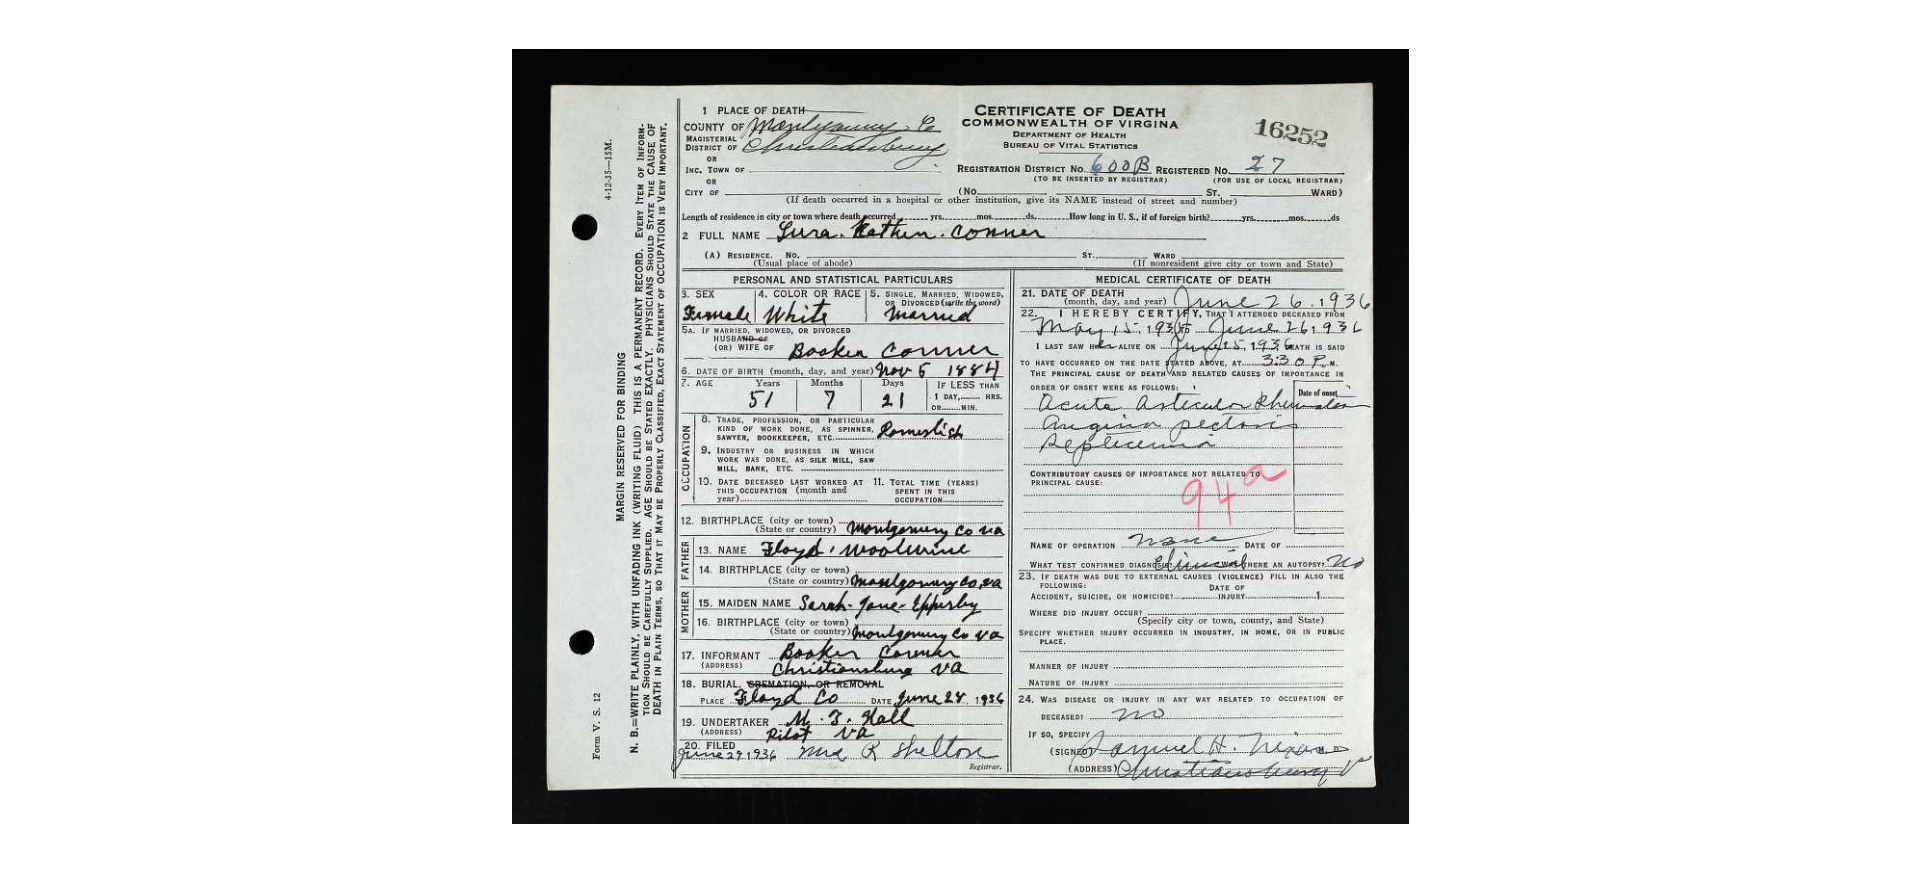 1 PLACE OF DEATH
CERTIFICATE OF DEATH
COMMONWEALTH OF VIRGINIA
DEPARTMENT OF HEALTH
BUREAU OF VITAL STATISTICS
16252
COUNTY OF Montgomery Co
MAGISTERIAL DISTRICT OF Christiansburg
OR
INC. TOWN OF
OR
CITY OF
REGISTRATION DISTRICT No. 600B REGISTERED No. 27
(TO BE INSERTED BY REGISTRAR) (FOR USE OF LOCAL REGISTRAR)
(No. ST. WARD)
(If death occurred in a hospital or other institution, give its NAME instead of street and number)
Length of residence in city or town where death occurred yrs. mos. ds. How long in U. S., if of foreign birth? yrs. mos. ds
2 FULL NAME Conner
(A) RESIDENCE. No. ST. WARD
(Usual place of abode) (If nonresident give city or town and State)
PERSONAL AND STATISTICAL PARTICULARS
3. SEX Female
4. COLOR OR RACE White
5. SINGLE, MARRIED, WIDOWED, OR DIVORCED (write the word) Married
5A. IF MARRIED, WIDOWED, OR DIVORCED
HUSBAND OF
(OR) WIFE OF Booker Conner
6. DATE OF BIRTH (month, day, and year) Nov 5 1884
7. AGE Years Months Days IF LESS THAN
51 7 21 1 DAY, HRS.
OR MIN.
OCCUPATION
8. TRADE, PROFESSION, OR PARTICULAR
KIND OF WORK DONE, AS SPINNER,
SAWYER, BOOKKEEPER, ETC. Domestick
9. INDUSTRY OR BUSINESS IN WHICH
WORK WAS DONE, AS SILK MILL, SAW
MILL, BANK, ETC.
10. DATE DECEASED LAST WORKED AT
THIS OCCUPATION (month and
year)
11. TOTAL TIME (YEARS)
SPENT IN THIS
OCCUPATION
12. BIRTHPLACE (city or town)
(State or country) Montgomery Co va
FATHER
13. NAME Floyd Woolwine
14. BIRTHPLACE (city or town)
(State or country) Montgomery Co, va
MOTHER
15. MAIDEN NAME Sarah Jane Epperly
16. BIRTHPLACE (city or town)
(State or country) Montgomery Co va
17. INFORMANT Booker Conner
(ADDRESS) Christiansburg VA
18. BURIAL, CREMATION, OR REMOVAL
PLACE Floyd Co DATE June 28, 1936
19. UNDERTAKER M. T. Hall
(ADDRESS) Pilot va
20. FILED
June 29 1936 Mrs R Shelton
Registrar.
MEDICAL CERTIFICATE OF DEATH
21. DATE OF DEATH
(month, day, and year) June 26, 1936
22. I HEREBY CERTIFY, THAT I ATTENDED DECEASED FROM
May 15, 1936 TO June 26, 1936
I LAST SAW HER ALIVE ON June 25, 1936 DEATH IS SAID
TO HAVE OCCURRED ON THE DATE STATED ABOVE, AT 3:30 P. M.
THE PRINCIPAL CAUSE OF DEATH AND RELATED CAUSES OF IMPORTANCE IN
ORDER OF ONSET WERE AS FOLLOWS:
Date of onset
Acute Articular Rheumatism
Angina pectoris
Septicemia
CONTRIBUTORY CAUSES OF IMPORTANCE NOT RELATED TO
PRINCIPAL CAUSE:
94a
NAME OF OPERATION None DATE OF
WHAT TEST CONFIRMED DIAGNOSIS? Clinical WAS THERE AN AUTOPSY? No
23. IF DEATH WAS DUE TO EXTERNAL CAUSES (VIOLENCE) FILL IN ALSO THE
FOLLOWING:
ACCIDENT, SUICIDE, OR HOMICIDE? DATE OF INJURY 1
WHERE DID INJURY OCCUR?
(Specify city or town, county, and State)
SPECIFY WHETHER INJURY OCCURRED IN INDUSTRY, IN HOME, OR IN PUBLIC
PLACE.
MANNER OF INJURY
NATURE OF INJURY
24. WAS DISEASE OR INJURY IN ANY WAY RELATED TO OCCUPATION OF
DECEASED? No
IF SO, SPECIFY
(SIGNED) Samuel H.
(ADDRESS) Christiansburg V
4-12-35—15M.
MARGIN RESERVED FOR BINDING
N. B.—WRITE PLAINLY, WITH UNFADING INK (WRITING FLUID) THIS IS A PERMANENT RECORD. EVERY ITEM OF INFORM-
TION SHOULD BE CAREFULLY SUPPLIED. AGE SHOULD BE STATED EXACTLY. PHYSICIANS SHOULD STATE THE CAUSE OF
DEATH IN PLAIN TERMS, SO THAT IT MAY BE PROPERLY CLASSIFIED. EXACT STATEMENT OF OCCUPATION IS VERY IMPORTANT.
Form V. S. 12